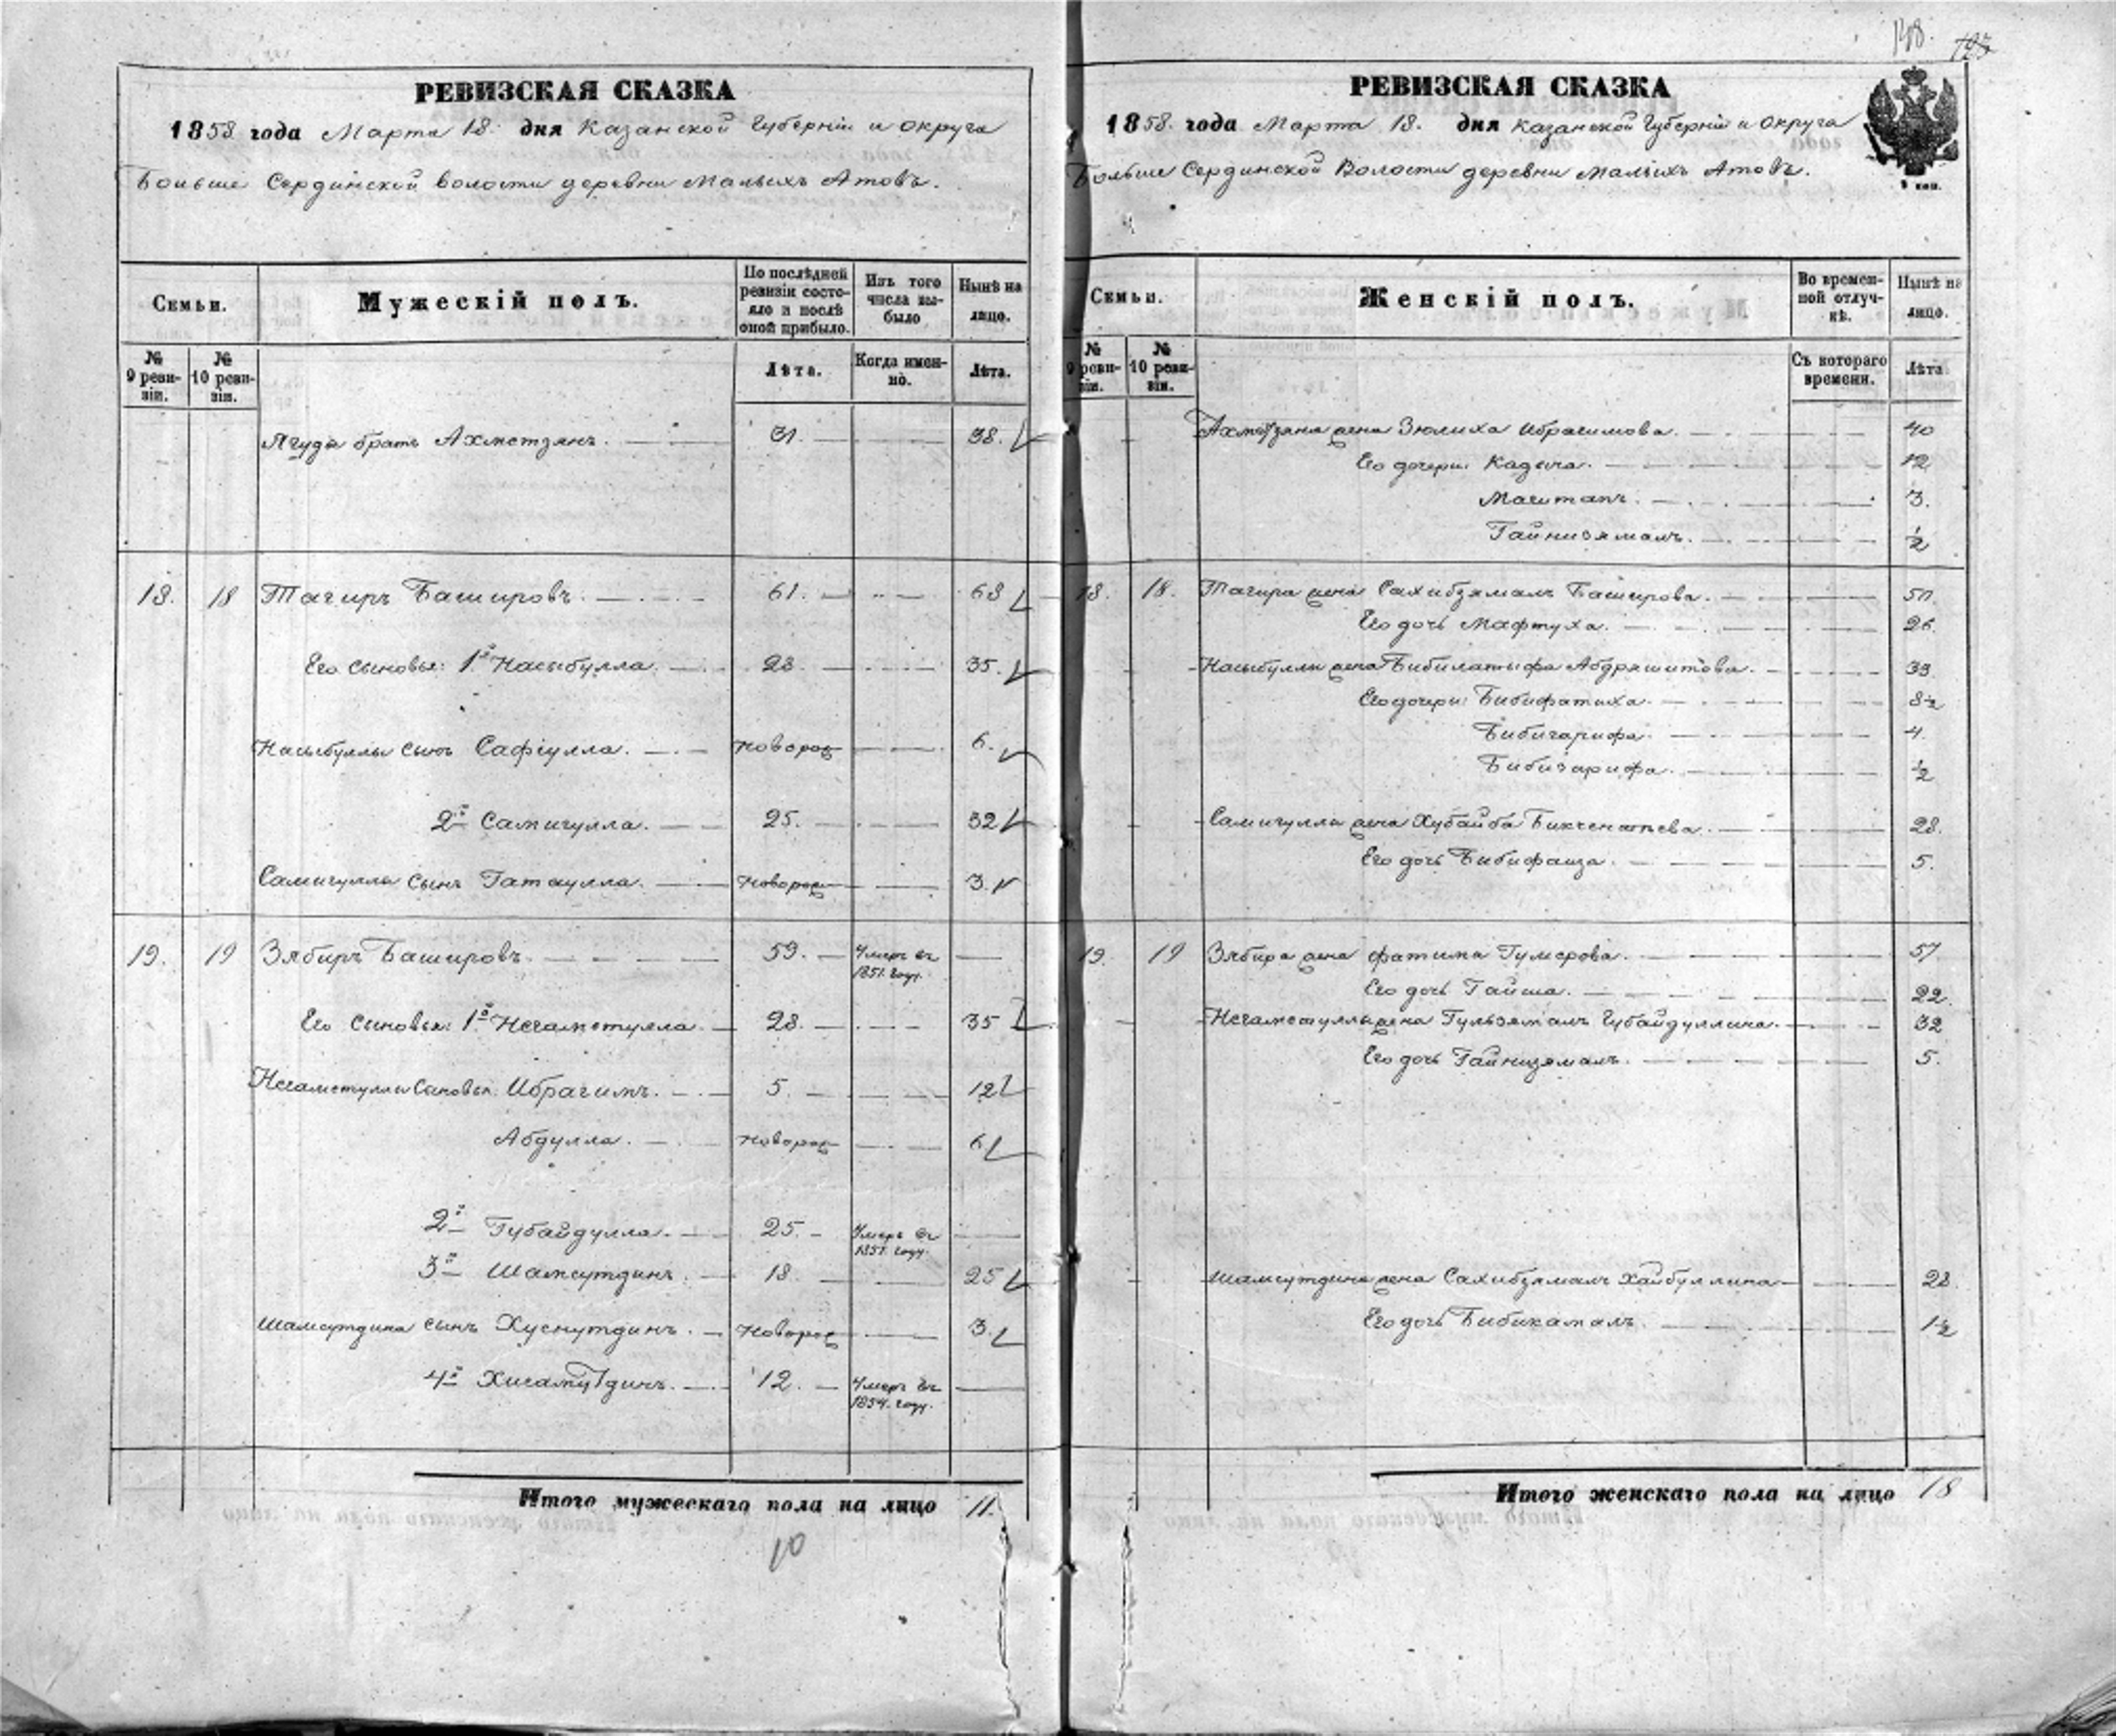 РЕВИЗСКАЯ СКАЗКА
1858 года Марта 18. дня Казанской Губерніи и округа
Больше Сердинской волости деревни Малыхъ Атовъ.
Семьи.
Мужескій полъ.
По послѣдней ревизіи состояло и послѣ оной прибыло.
Изъ того числа выбыло
Нынѣ на лицо.
№ 9 ревизіи.
№ 10 ревизіи.
Лѣта.
Когда именно.
Лѣта.
Ягуда братъ Ахметзянъ. 31. 38.
18. 18 Тагиръ Башировъ. 61. 68
Его сыновья: 1й Насыбулла. 28 35.
Насыбуллы сынъ Сафіулла. новорож 6.
2й Самигулла. 25. 32
Самигуллы сынъ Гатаулла. новорож 3.
19. 19 Зябиръ Башировъ. 59. Умеръ въ 1851. году.
Его сыновья: 1й Негаметулла. 28. 35
Негаметуллы сыновья: Ибрагимъ. 5. 12
Абдулла. новорож 6
2й Губайдулла. 25. Умеръ въ 1851. году.
3й Шамсутдинъ. 18. 25
Шамсутдина сынъ Хуснутдинъ. новорож 3.
4й Хисамутдинъ. 12. Умеръ въ 1854. году.
Итого мужескаго пола на лицо 11.
10
148. 123
РЕВИЗСКАЯ СКАЗКА
1858. года Марта 18. дня Казанской Губерніи и округа
Больше Сердинской Волости деревни Малыхъ Атовъ.
Семьи.
Женскій полъ.
Во временной отлучкѣ.
Нынѣ на лицо.
№ 9 ревизіи.
№ 10 ревизіи.
Съ котораго времени.
Лѣта
Ахметзяна жена Зюлиха Ибрагимова. 40
Его дочери: Кадыча. 12
Магитапъ. 3.
Гайнизямалъ. ½
18. 18. Тагира жена Сахибзямалъ Баширова. 50.
Его дочь Мафтуха. 26.
Насыбуллы жена Бибилатыфа Абдряшитова. 33.
Его дочери: Бибифатиха. 8½
Бибигарифа. 4.
Бибизарифа. ½
Самигуллы жена Хубайба Бикчентаева. 28.
Его дочь Бибифаиза. 5.
19. 19 Зябира жена Фатима Гумерова. 57
Его дочь Гайша. 22.
Негаметуллы жена Гульзямалъ Губайдуллина. 32
Его дочь Гайнизямалъ. 5.
Шамсутдина жена Сахибзямалъ Хайбуллина 28.
Его дочь Бибикамалъ. 1½
Итого женскаго пола на лицо 18